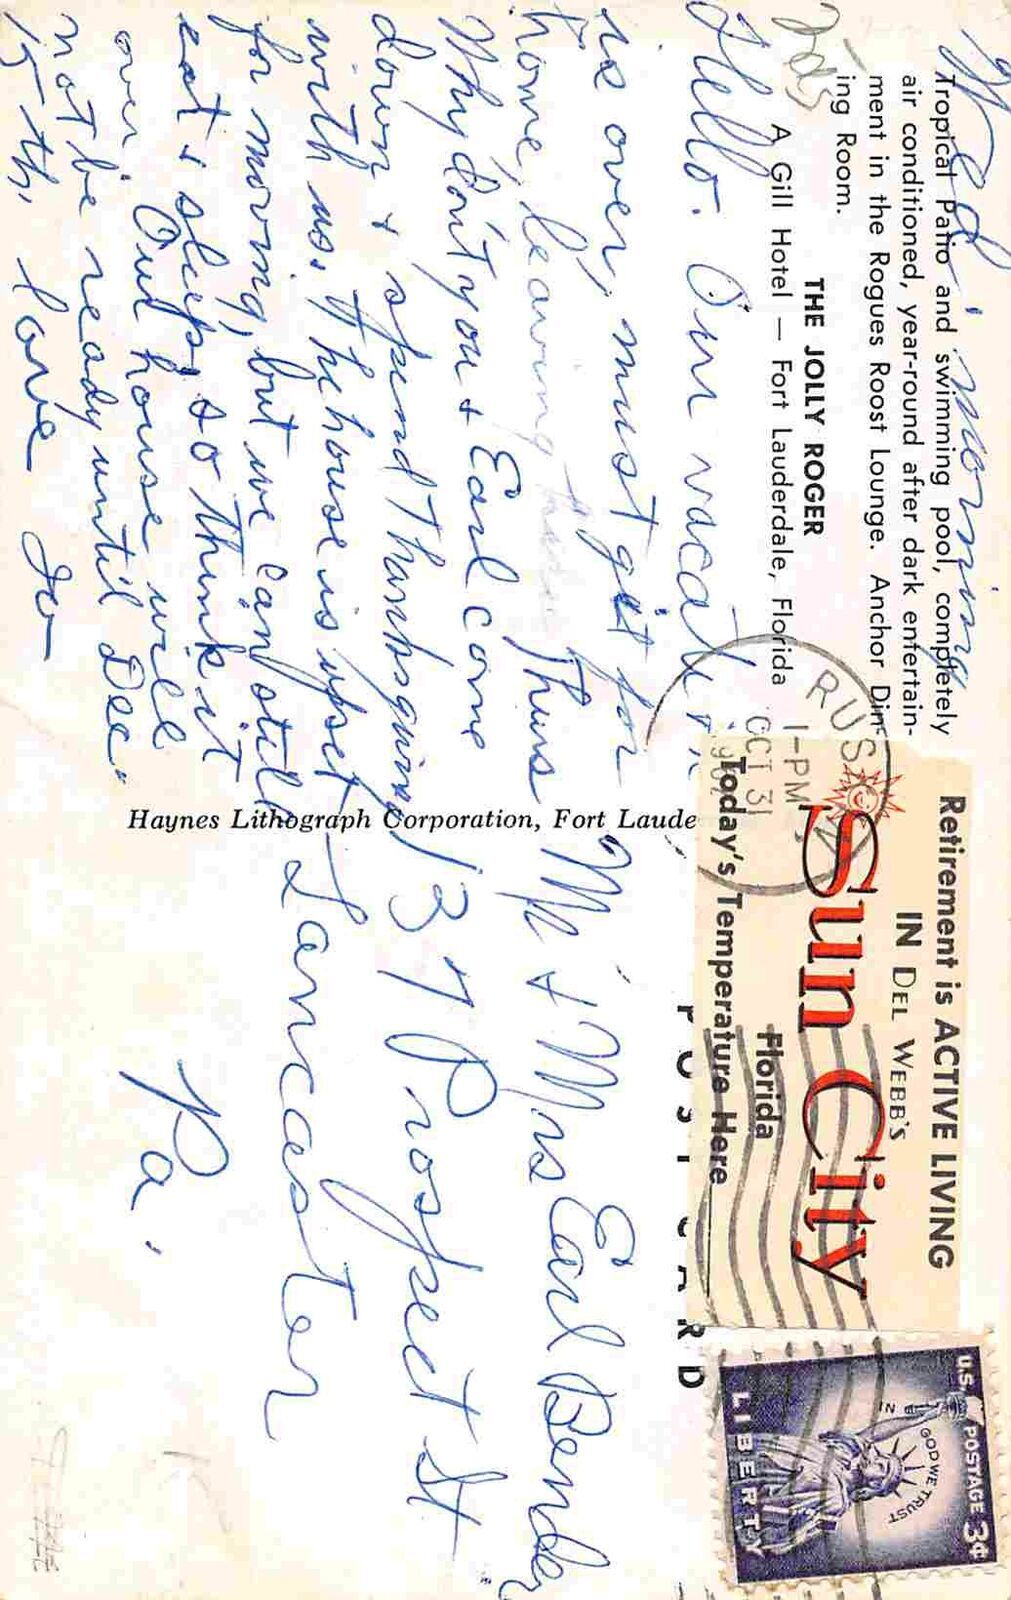 Wed. morning
Tropical Patio and swimming pool, completely
air conditioned, year-round after dark entertain-
ment in the Rogues Roost Lounge. Anchor Din-
ing Room.
THE JOLLY ROGER
A Gill Hotel — Fort Lauderdale, Florida
Hello. Our vacation
is over, must get for
home, leaving here Thurs
Why don't you + Earl come
down + spend Thanksgiving
with us. The house is upset
for moving, but we can still
eat + sleep, so think it
over. Our house will
not be ready until Dec.
15th, love Jo
Haynes Lithograph Corporation, Fort Laude
POST CARD
Retirement is ACTIVE LIVING
IN DEL WEBB'S
Sun City
Florida
Today's Temperature Here
RUSKIN
1-PM
OCT 31
U.S. POSTAGE 3¢
IN GOD WE TRUST
LIBERTY
Mr + Mrs Earl Bender
137 Prospect St
Lancaster
Pa.